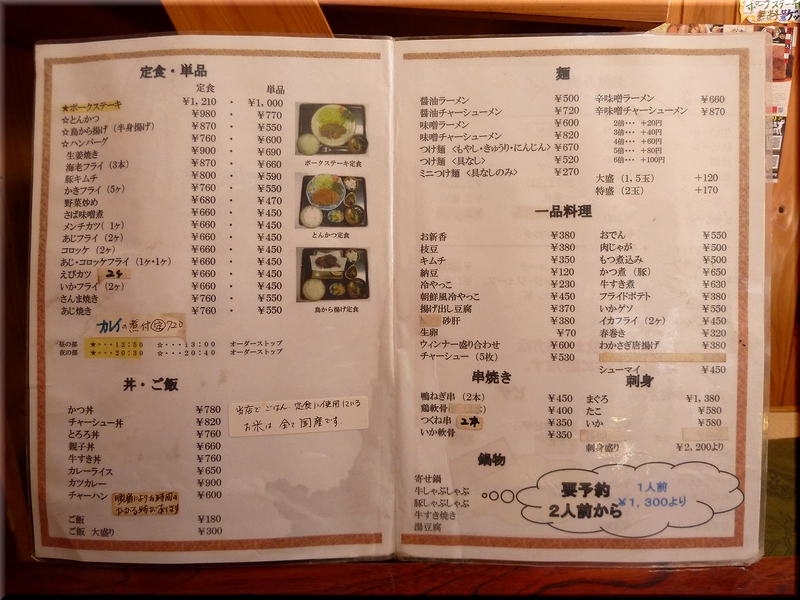 定食・単品
定食 単品
★ポークステーキ ¥1,210 ・ ¥1,000
☆とんかつ ¥980 ・ ¥770
☆鳥から揚げ (半身揚げ) ¥870 ・ ¥550
☆ハンバーグ ¥760 ・ ¥600
生姜焼き ¥900 ・ ¥690
海老フライ (3本) ¥870 ・ ¥660
豚キムチ ¥800 ・ ¥590
かきフライ (5ヶ) ¥760 ・ ¥550
野菜炒め ¥680 ・ ¥470
さば味噌煮 ¥660 ・ ¥450
メンチカツ (1ヶ) ¥660 ・ ¥450
あじフライ (2ヶ) ¥660 ・ ¥450
コロッケ (2ヶ) ¥660 ・ ¥450
あじ・コロッケフライ (1ヶ・1ヶ) ¥660 ・ ¥450
えびカツ 2ヶ ¥660 ・ ¥450
いかフライ (2ヶ) ¥660 ・ ¥450
さんま焼き ¥760 ・ ¥550
あじ焼き ¥760 ・ ¥550
カレイの煮付 定 720
昼の部 ★・・・12:50 ☆・・・13:00 オーダーストップ
夜の部 ★・・・20:30 ☆・・・20:40 オーダーストップ
ポークステーキ定食
とんかつ定食
鳥から揚げ定食
丼・ご飯
かつ丼 ¥780
チャーシュー丼 ¥820
とろろ丼 ¥760
親子丼 ¥660
牛すき丼 ¥760
カレーライス ¥650
カツカレー ¥900
チャーハン ¥600
ご飯 ¥180
ご飯 大盛り ¥300
当店でごはん、定食に使用している
お米は全て国産です。
麺
醤油ラーメン ¥500
醤油チャーシューメン ¥720
味噌ラーメン ¥600
味噌チャーシューメン ¥820
つけ麺 <もやし・きゅうり・にんじん> ¥670
つけ麺 <具なし> ¥520
ミニつけ麺 <具なしのみ> ¥270
辛味噌ラーメン ¥660
辛味噌チャーシューメン ¥870
2倍・・・ +20円
3倍・・・ +40円
4倍・・・ +60円
5倍・・・ +80円
6倍・・・ +100円
大盛 (1,5玉) +120
特盛 (2玉) +170
一品料理
お新香 ¥380
枝豆 ¥380
キムチ ¥350
納豆 ¥120
冷やっこ ¥230
朝鮮風冷やっこ ¥450
揚げ出し豆腐 ¥370
砂肝 ¥450
生卵 ¥70
ウィンナー盛り合わせ ¥600
チャーシュー (5枚) ¥530
おでん ¥550
肉じゃが ¥500
もつ煮込み ¥500
かつ煮 (豚) ¥650
牛すき煮 ¥630
フライドポテト ¥380
いかゲソ ¥550
イカフライ (2ヶ) ¥450
春巻き ¥320
わかさぎ唐揚げ ¥380
シューマイ ¥450
串焼き
鴨ねぎ串 (2本) ¥450
鶏軟骨 ¥400
つくね串 2本 ¥350
いか軟骨 ¥350
刺身
まぐろ ¥1,380
たこ ¥580
いか ¥580
刺身盛り ¥2,200より
鍋物
寄せ鍋
牛しゃぶしゃぶ
豚しゃぶしゃぶ
牛すき焼き
湯豆腐
要予約
2人前から
1人前
¥1,300より